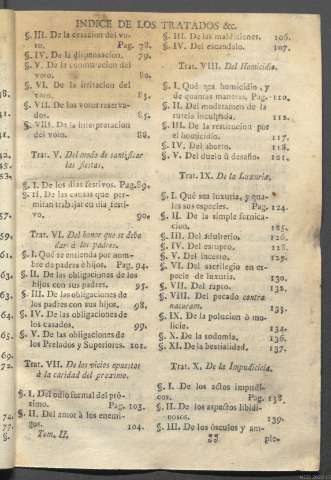 INDICE DE LOS TRATADOS &c.
§. III. De la cessacion del vo-
to. Pag. 78.
§. IV. De la dispensacion. 79.
§. V. De la commutacion del
voto. 80.
§. VI. De la irritacion del
voto. 83.
§. VII. De los votos reserva-
dos. 85.
§. VIII. De la interpretacion
del voto. 88.
Trat. V. Del modo de santificar
las fiestas.
§. I. De los dias festivos. Pag. 89.
§. II. De las causas que per-
mitan trabajar en dia festi-
vo. 90.
Trat. VI. Del honor que se debe
dar à los padres.
§. I. Que se entienda por nom-
bre de padres è hijos. Pag. 94.
§. II. De las obligaciones de los
hijos con sus padres. 95.
§. III. De las obligaciones de
los padres con sus hijos. 98.
§. IV. De las obligaciones de
los casados. 99.
§. V. De las obligaciones de
los Prelados y Superiores. 101.
Trat. VII. De los vicios opuestos
à la caridad del proximo.
§. I. Del odio formal del pro-
ximo. Pag. 103.
§. II. Del amor à los enemi-
gos. 104.
Tom. II.
§. III. De las maldiciones. 106.
§. IV. Del escandalo. 107.
Trat. VIII. Del Homicidio.
§. I. Què sea homicidio, y
de quantas maneras. Pag. 110.
§. II. Del moderamen de la
tutela inculpada. 112.
§. III. De la restitucion por
el homicidio. 117.
§. IV. Del aborto. 118.
§. V. Del duelo ù desafio. 101.
Trat. IX. De la Luxuria.
§. I. Què sea luxuria, y qua-
les sus especies. Pag. 124.
§. II. De la simple fornica-
cion. 125.
§. III. Del adulterio. 126.
§. IV. Del estupro. 128.
§. V. Del incesto. 129.
§. VI. Del sacrilegio en es-
pecie de luxuria. 130.
§. VII. Del rapto. 132.
§. VIII. Del pecado contra
naturam. 133.
§. IX. De la polucion ò mo-
licie. 134.
§. X. De la sodomia. 136.
§. XI. De la bestialidad. 137.
Trat. X. De la Impudicicia.
§. I. De los actos impudi-
cos. Pag. 138.
§. II. De los aspectos libidi-
nosos. 139.
§. III. De los ósculos y am-
ple-